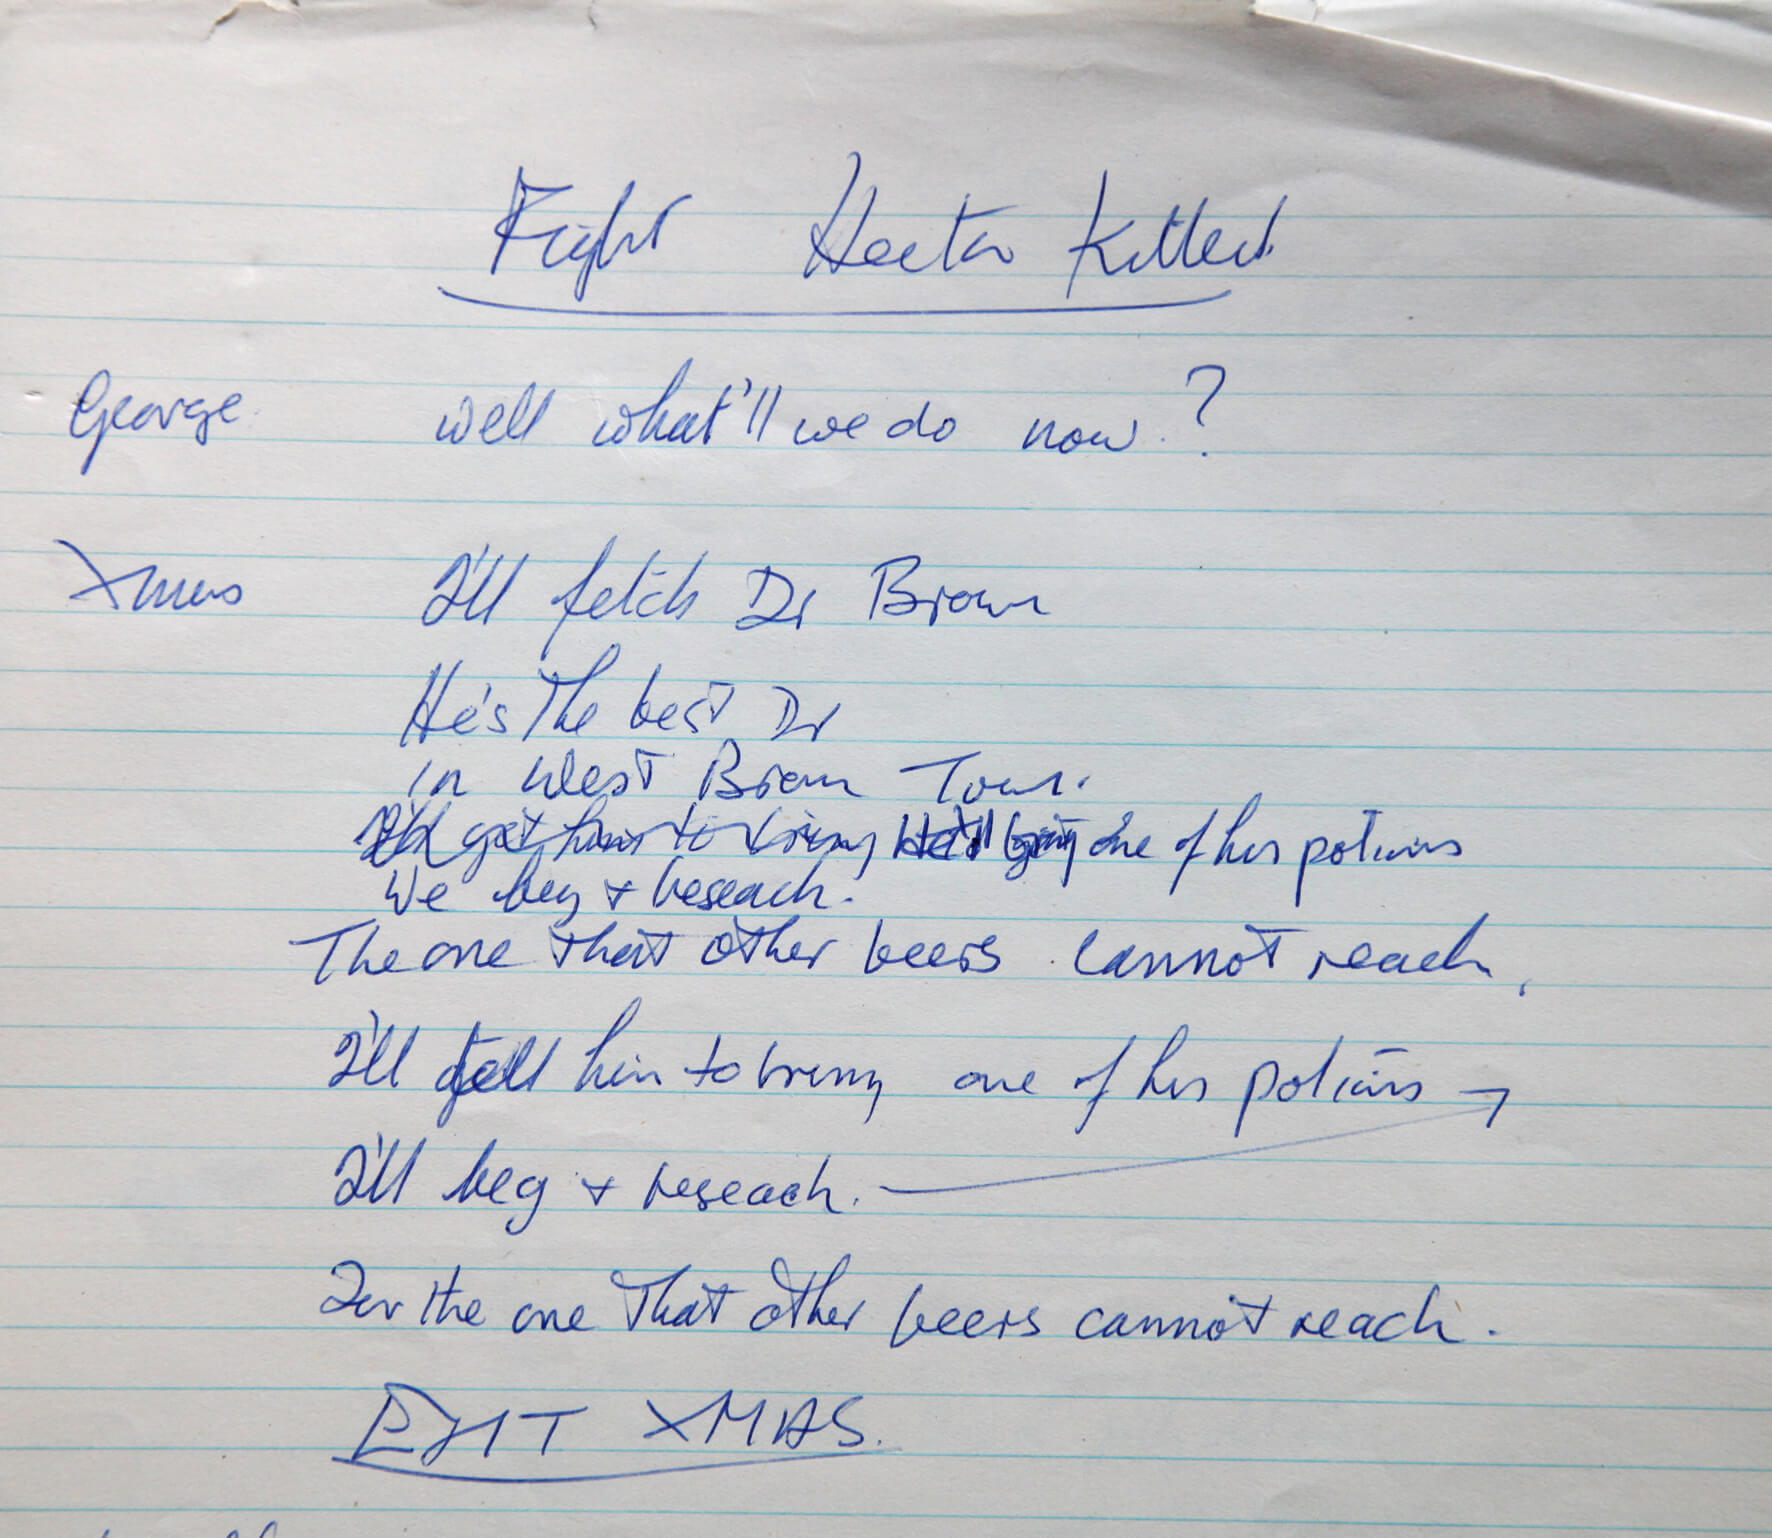 Fight Hector Killed
George well what'll we do now?
Xmas I'll fetch Dr Brown
He's the best Dr
in West Brom Town.
I'll get him to bring He'll bring one of his potions
We beg + beseach.
The one that other beers cannot reach,
I'll tell him to bring one of his potions
I'll beg + beseach.
For the one that other beers cannot reach.
EXIT XMAS.